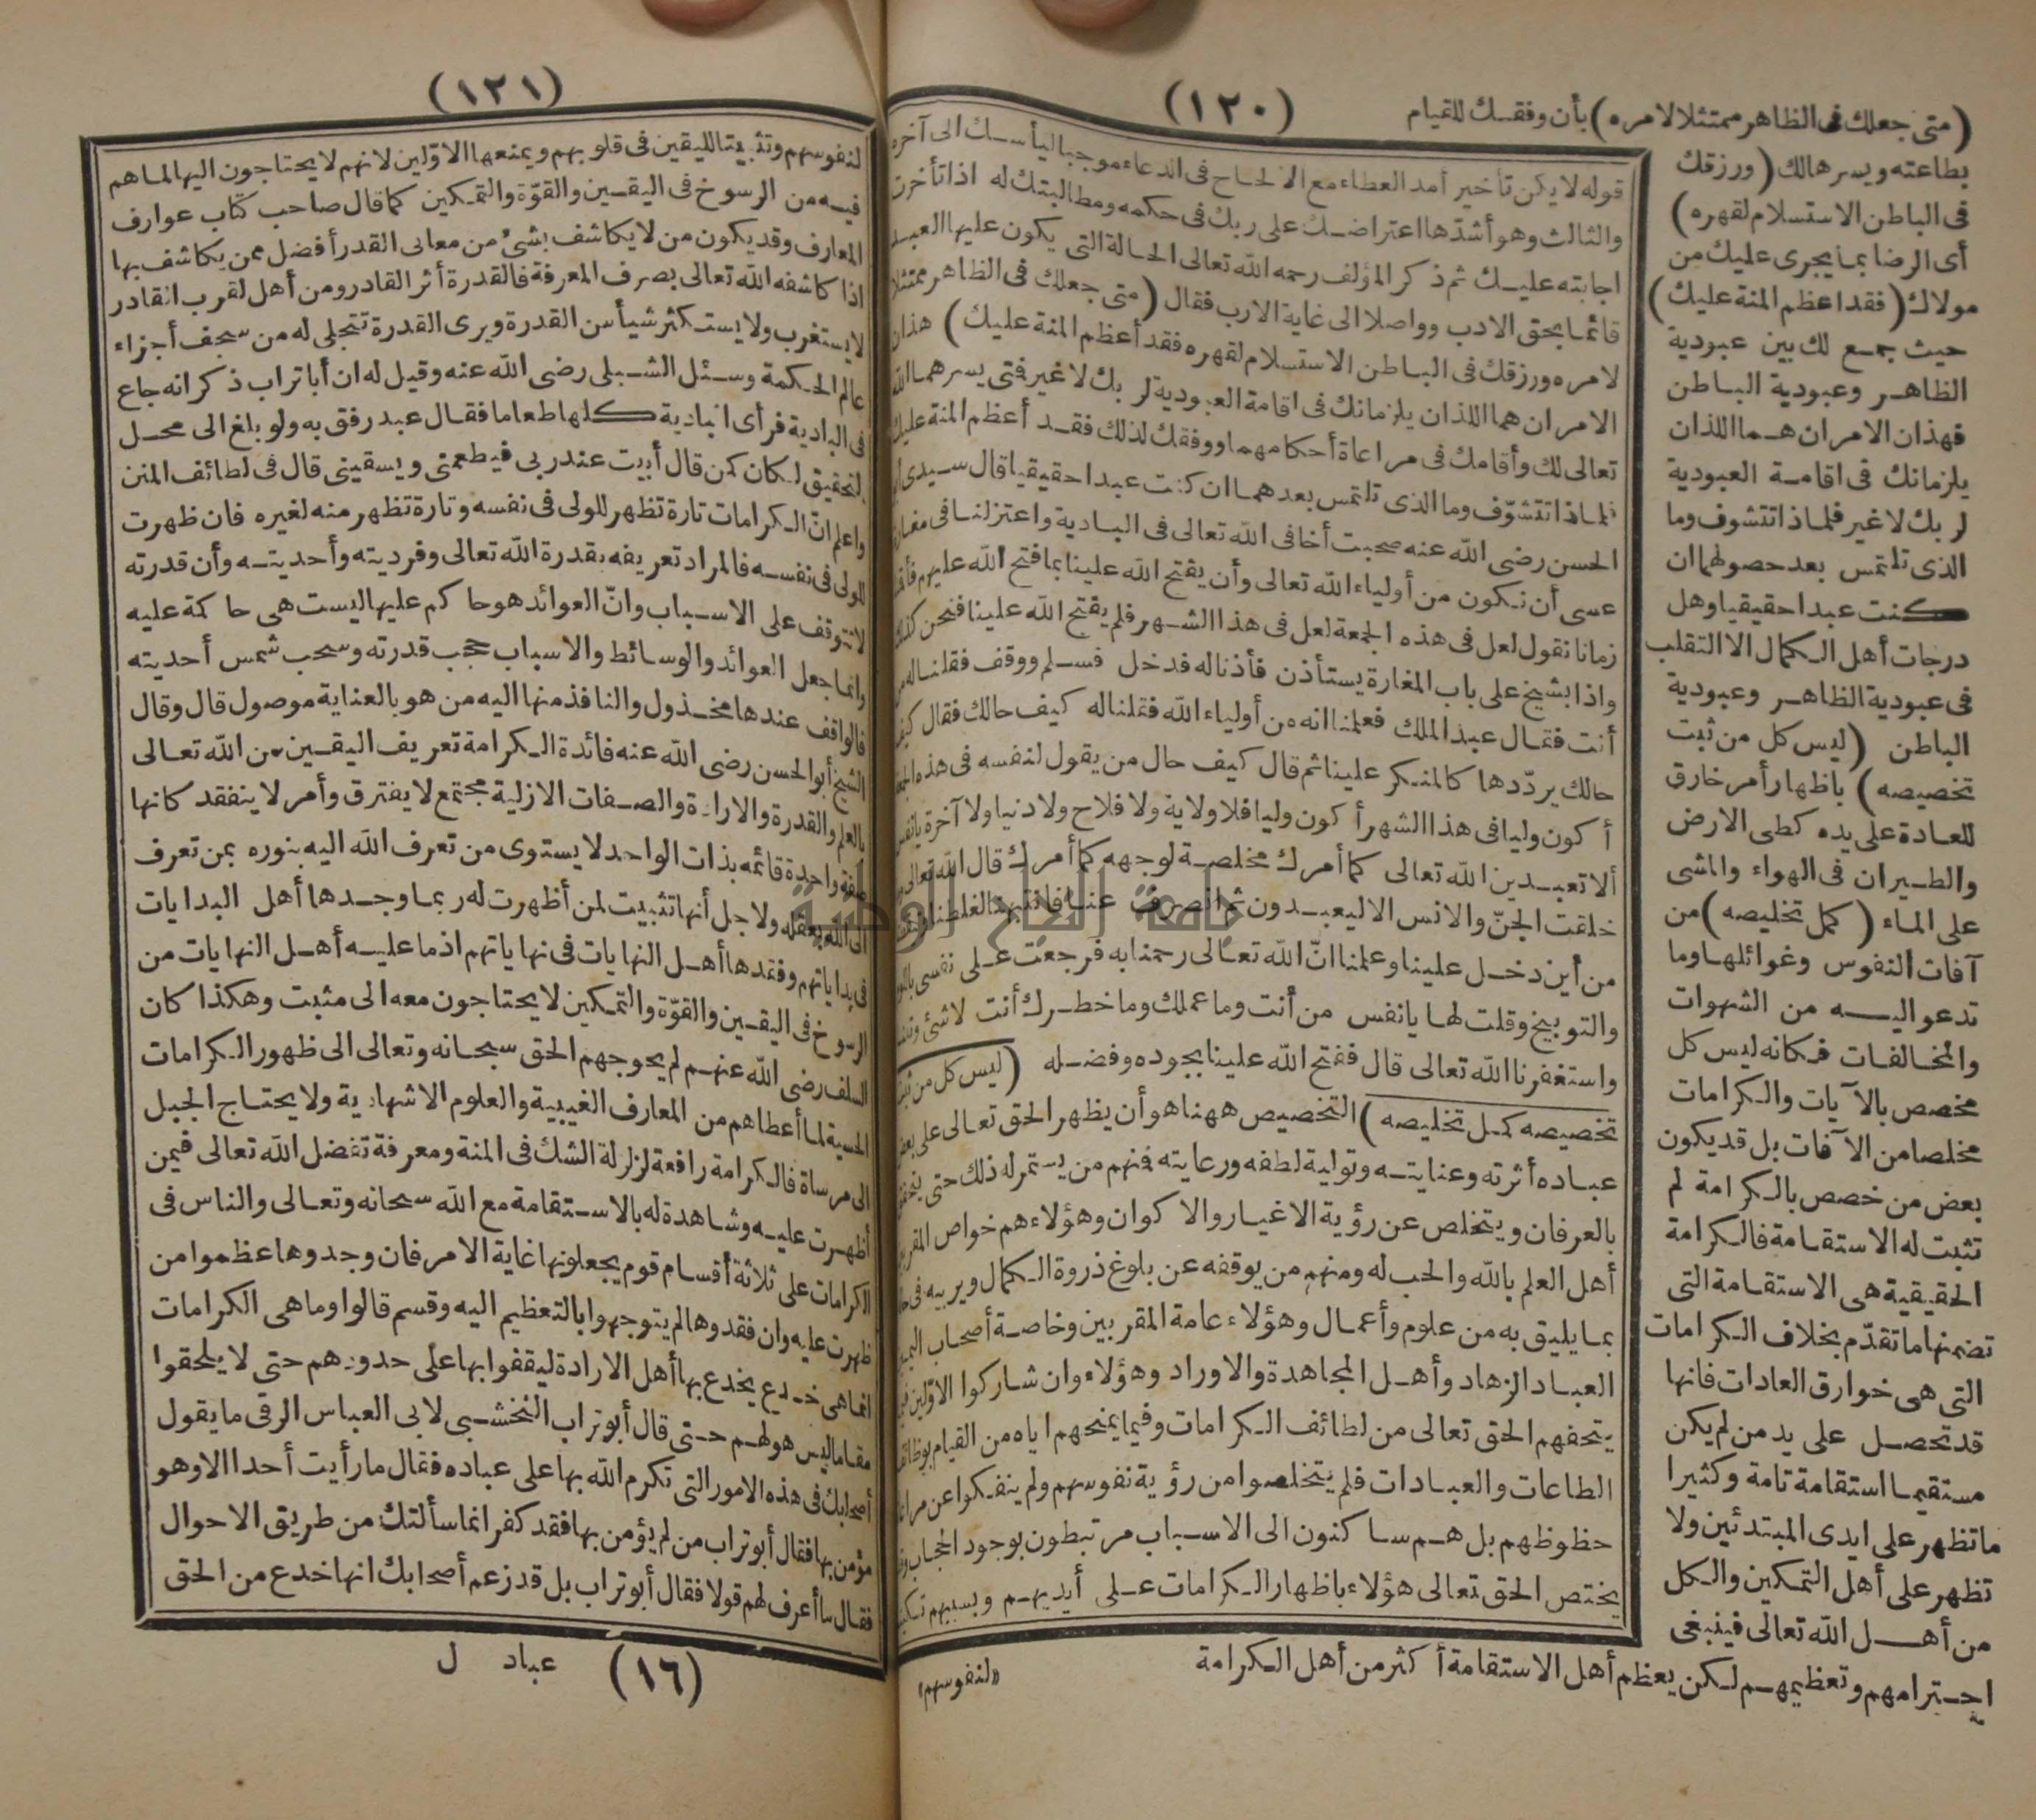 (١٢٠)
(متى جعلك فى الظاهر ممتثلا لامره) بأن وفقك للقيام
بطاعته ويسرها لك (ورزقك
فى الباطن الاستسلام لقهره)
أى الرضا بما يجرى عليك من
مولاك (فقد اعظم المنة عليك)
حيث جمع لك بين عبودية
الظاهر وعبودية الباطن
فهذان الامران هما اللذان
يلزمانك فى اقامة العبودية
لربك لا غير فلماذا تتشوف وما
الذى تلتمس بعد حصولهما ان
كنت عبدا حقيقيا وهل
درجات أهل الكمال الا التقلب
فى عبودية الظاهر وعبودية
الباطن (ليس كل من ثبت
تخصيصه) باظهار أمر خارق
للعادة على يده كطى الارض
والطيران فى الهواء والمشى
على الماء (كمل تخليصه) من
آفات النفوس وغوائلها وما
تدعو اليه من الشهوات
والمخالفات فكانه ليس كل
مخصص بالآيات والكرامات
مخلصا من الآفات بل قد يكون
بعض من خصص بالكرامة لم
تثبت له الاستقامة فالكرامة
الحقيقية هى الاستقامة التى
تضمنها ما تقدّم بخلاف الكرامات
التى هى خوارق العادات فانها
قد تحصل على يد من لم يكن
مستقيما استقامة تامة وكثيرا
ما تظهر على ايدى المبتدئين ولا
تظهر على أهل التمكين والكل
من أهل الله تعالى فينبغى
احترامهم وتعظيمهم لكن يعظم أهل الاستقامة أكثر من أهل الكرامة
قوله لا يكن تأخير أمد العطاء مع الالحاح فى الدعاء موجبا ليأسك الى آخره
والثالث وهو أشدّها اعتراضك على ربك فى حكمه ومطالبتك له اذا تأخرت
اجابته عليك ثم ذكر المؤلف رحمه الله تعالى الحالة التى يكون عليها العبد
قائما بحق الادب وواصلا الى غاية الارب فقال (متى جعلك فى الظاهر ممتثلا
لامره ورزقك فى الباطن الاستسلام لقهره فقد أعظم المنة عليك) هذان
الامران هما اللذان يلزمانك فى اقامة العبودية لربك لا غير فتى يسرهما الله
تعالى لك وأقامك فى مراعاة أحكامهما ووفقك لذلك فقد أعظم المنة عليك
فلماذا تتشوّف وما الذى تلتمس بعدهما ان كنت عبدا حقيقيا قال سيدى أبو
الحسن رضى الله عنه صحبت أخا فى الله تعالى فى البادية واعتزلنا فى مغارة
عسى أن نكون من أولياء الله تعالى وأن يفتح الله علينا بما فتح الله عليهم فأقمنا
زمانا نقول لعل فى هذه الجمعة لعل فى هذا الشهر فلم يفتح الله علينا فنحن كذلك
واذا بشيخ على باب المغارة يستأذن فأذنا له فدخل فسلم ووقف فقلنا له من
أنت فقال عبد الملك فعلمنا انه من أولياء الله فقلنا له كيف حالك فقال كيف
حالك يردّدها كالمنكر علينا ثم قال كيف حال من يقول لنفسه فى هذه الجمعة
أكون وليا فى هذا الشهر أكون وليا فلا ولاية ولا فلاح ولا دنيا ولا آخرة يا نفس
ألا تعبدين الله تعالى كما أمرك مخلصة لوجهه كما أمرك قال الله تعالى وما
خلقت الجنّ والانس الا ليعبدون ثم انصرف عنا فانتبهنا لغلطنا
من أين دخل علينا وعلمنا انّ الله تعالى رحمنا به فرجعت على نفسى باللوم
والتوبيخ وقلت لها يا نفس من أنت وما عملك وما خطرك أنت لا شئ
واستغفرنا الله تعالى قال ففتح الله علينا بجوده وفضله (ليس كل من ثبت
تخصيصه كمل تخليصه) التخصيص ههنا هو أن يظهر الحق تعالى على بعض
عباده أثرته وعنايته وتولية لطفه ورعايته فمنهم من يستمر له ذلك حتى يتحقق
بالعرفان ويتخلص عن رؤية الاغيار والاكوان وهؤلاء هم خواص المقربين
أهل العلم بالله والحب له ومنهم من يوقفه عن بلوغ ذروة الكمال ويربيه فى حاله
بما يليق به من علوم وأعمال وهؤلاء عامة المقربين وخاصة أصحاب اليمين
العباد الزهاد وأهل المجاهدة والاوراد وهؤلاء وان شاركوا الاوّلين فيما
يتحفهم الحق تعالى من لطائف الكرامات وفيما يمنحهم اياه من القيام بوظائف
الطاعات والعبادات فلم يتخلصوا من رؤية نفوسهم ولم ينفكوا عن مراعاة
حظوظهم بل هم ساكنون الى الاسباب مرتبطون بوجود الحجاب وقد
يختص الحق تعالى هؤلاء باظهار الكرامات على أيديهم وبسببهم تسكينا
«لنفوسهم»
(١٢١)
لنفوسهم وتثبيتا لليقين فى قلوبهم ويمنعها الاوّلين لانهم لا يحتاجون اليها لما هم
فيه من الرسوخ فى اليقين والقوّة والتمكين كما قال صاحب كتاب عوارف
المعارف وقد يكون من لا يكاشف بشئ من معانى القدر أفضل ممن يكاشف بها
اذا كاشفه الله تعالى بصرف المعرفة فالقدرة أثر القادر ومن أهل لقرب القادر
لا يستغرب ولا يستكثر شيأ من القدرة ويرى القدرة تتجلى له من سجف أجزاء
عالم الحكمة وسئل الشبلى رضى الله عنه وقيل له ان أبا تراب ذكر انه جاع
فى البادية فرأى البادية كلها طعاما فقال عبد رفق به ولو بلغ الى محل
التحقيق لكان كمن قال أبيت عند ربى فيطعمنى ويسقينى قال فى لطائف المنن
واعلم انّ الكرامات تارة تظهر للولى فى نفسه وتارة تظهر منه لغيره فان ظهرت
للولى فى نفسه فالمراد تعريفه بقدرة الله تعالى وفرديته وأحديته وأن قدرته
لا تتوقف على الاسباب وانّ العوائد هو حاكم عليها ليست هى حاكمة عليه
وانما جعل العوائد والوسائط والاسباب حجب قدرته وسحب شمس أحديته
فالواقف عندها مخذول والنافذ منها اليه من هو بالعناية موصول قال وقال
الشيخ أبو الحسن رضى الله عنه فائدة الكرامة تعريف اليقين من الله تعالى
بالعلم والقدرة والارادة والصفات الازلية مجتمع لا يفترق وأمر لا ينفقد كانها
صفة واحدة قائمه بذات الواحد لا يستوى من تعرف الله اليه بنوره بمن تعرف
الى الله بعقله ولاجل أنها تثبيت لمن أظهرت له ربما وجدها أهل البدايات
فى بداياتهم وفقدها أهل النهايات فى نهاياتهم اذ ما عليه أهل النهايات من
الرسوخ فى اليقين والقوّة والتمكين لا يحتاجون معه الى مثبت وهكذا كان
السلف رضى الله عنهم لم يحوجهم الحق سبحانه وتعالى الى ظهور الكرامات
الحسية لما أعطاهم من المعارف الغيبية والعلوم الاشهادية ولا يحتاج الجبل
الى مرساة فالكرامة رافعة لزلزلة الشك فى المنة ومعرفة تفضل الله تعالى فيمن
أظهرت عليه وشاهدة له بالاستقامة مع الله سبحانه وتعالى والناس فى
الكرامات على ثلاثة أقسام قوم يجعلونها غاية الامر فان وجدوها عظموا من
ظهرت عليه وان فقدوها لم يتوجهوا بالتعظيم اليه وقسم قالوا وما هى الكرامات
انما هى خدع يخدع بها أهل الارادة ليقفوا بها على حدودهم حتى لا يلحقوا
مقاما ليس هو لهم حتى قال أبو تراب النخشبى لابى العباس الرقى ما يقول
أصحابك فى هذه الامور التى تكرم الله بها على عباده فقال ما رأيت أحدا الا وهو
مؤمن بها فقال أبو تراب من لم يؤمن بها فقد كفر انما سألتك من طريق الاحوال
فقال ما أعرف لهم قولا فقال أبو تراب بل قد زعم أصحابك انها خدع من الحق
(١٦) عباد ل
جامعة النجاح الوطنية